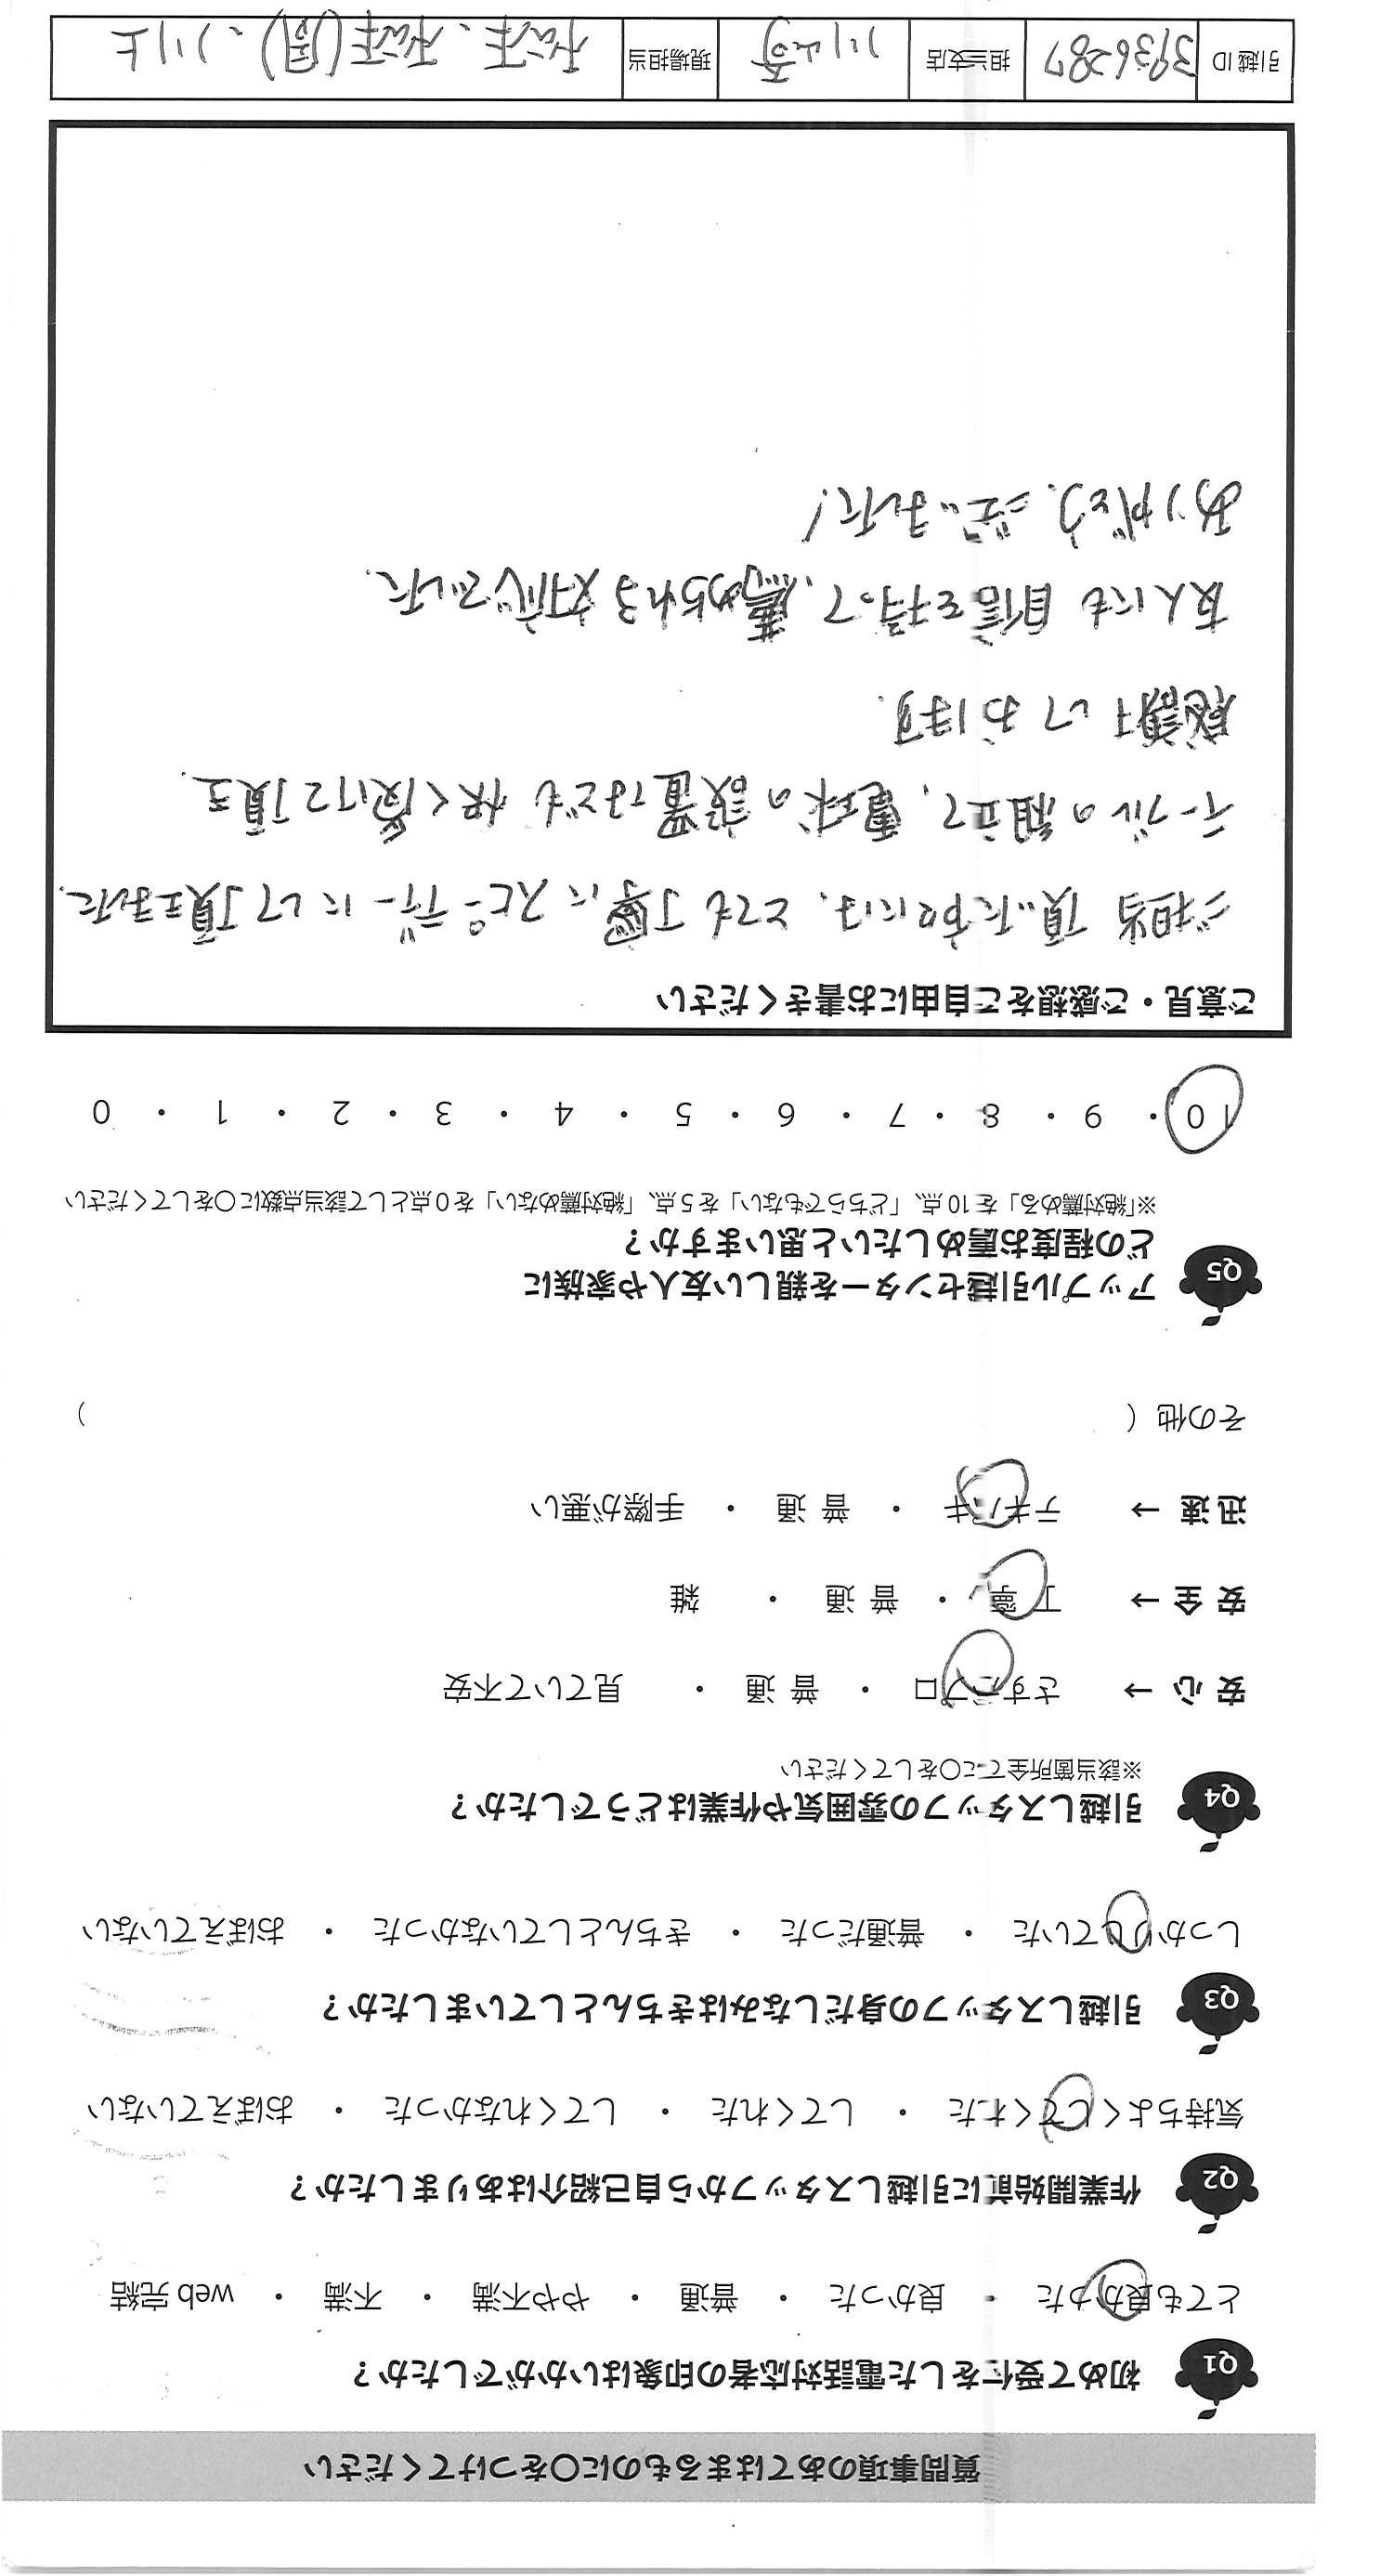 質問事項のあてはまるものに〇をつけてください
Q1 初めて受付をした電話対応者の印象はいかがでしたか？
とても良かった ・ 良かった ・ 普通 ・ やや不満 ・ 不満 ・ web 完結
Q2 作業開始前に引越しスタッフから自己紹介はありましたか？
気持ちよくしてくれた ・ してくれた ・ してくれなかった ・ おぼえていない
Q3 引越しスタッフの身だしなみはきちんとしていましたか？
しっかりしていた ・ 普通だった ・ きちんとしていなかった ・ おぼえていない
Q4 引越しスタッフの雰囲気や作業はどうでしたか？
※該当箇所全てに〇をしてください
安心 → さすがプロ ・ 普通 ・ 見ていて不安
安全 → 丁寧 ・ 普通 ・ 雑
迅速 → テキパキ ・ 普通 ・ 手際が悪い
その他（ ）
Q5 アップル引越センターを親しい友人や家族に
どの程度お薦めしたいと思いますか？
※「絶対薦める」を10点、「どちらでもない」を5点、「絶対薦めない」を0点として該当点数に〇をしてください
10 ・ 9 ・ 8 ・ 7 ・ 6 ・ 5 ・ 4 ・ 3 ・ 2 ・ 1 ・ 0
ご意見・ご感想をご自由にお書きください
ご担当頂いた方々には、とても丁寧に、スピーディーにして頂きました。
テーブルの組立て、電球の設置なども快く受けて頂き、
感謝しております。
友人にも自信を持って、薦められる対応でした。
ありがとうございました!
引越ID 3936287 担当支店 川崎 現場担当 松庄、松庄(周)、川上